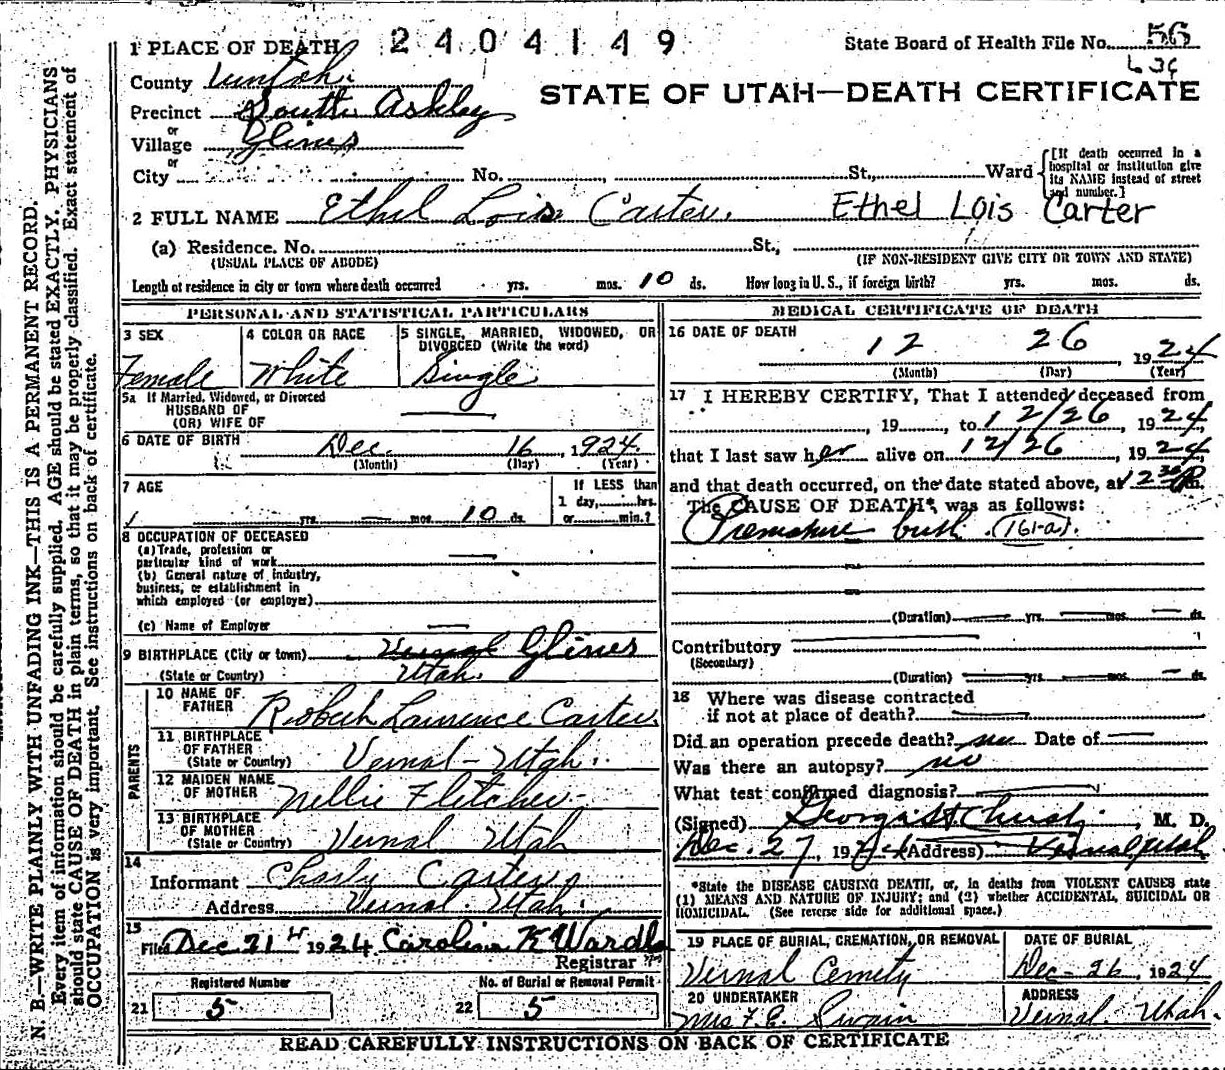 1 PLACE OF DEATH 2404149 State Board of Health File No. 56
County Uintah.
Precinct South Ashley STATE OF UTAH—DEATH CERTIFICATE
or
Village Glines
or
City No. St., Ward [If death occurred in a hospital or institution give its NAME instead of street and number.]
2 FULL NAME Ethel Lois Carter. Ethel Lois Carter
(a) Residence. No. St.,
(USUAL PLACE OF ABODE) (IF NON-RESIDENT GIVE CITY OR TOWN AND STATE)
Length of residence in city or town where death occurred yrs. mos. 10 ds. How long in U. S., if foreign birth? yrs. mos. ds.
PERSONAL AND STATISTICAL PARTICULARS
3 SEX 4 COLOR OR RACE 5 SINGLE, MARRIED, WIDOWED, OR DIVORCED (Write the word)
Female White Single
5a If Married, Widowed, or Divorced
HUSBAND OF
(OR) WIFE OF
6 DATE OF BIRTH Dec. 16, 1924
(Month) (Day) (Year)
7 AGE If LESS than
1 day, hrs.
yrs. — mos. 10 ds. or min.?
8 OCCUPATION OF DECEASED
(a) Trade, profession or
particular kind of work —
(b) General nature of industry,
business, or establishment in
which employed (or employer)
(c) Name of Employer —
9 BIRTHPLACE (City or town) Vernal Glines
(State or Country) Utah.
PARENTS
10 NAME OF
FATHER Robert Lawrence Carter.
11 BIRTHPLACE
OF FATHER
(State or Country) Vernal - Utah.
12 MAIDEN NAME
OF MOTHER Nellie Fletcher
13 BIRTHPLACE
OF MOTHER
(State or Country) Vernal Utah
14
Informant Charly Carter
Address Vernal. Utah.
15
Filed Dec 21 1924 Caroline K Wardle
Registrar
Registered Number No. of Burial or Removal Permit
21 5 22 5
MEDICAL CERTIFICATE OF DEATH
16 DATE OF DEATH
12 26, 1924
(Month) (Day) (Year)
17 I HEREBY CERTIFY, That I attended deceased from
, 19 , to 12/26, 1924,
that I last saw her alive on 12/26, 1924,
and that death occurred, on the date stated above, at 12 30 P m.
The CAUSE OF DEATH*, was as follows:
Premature birth (161-a).
(Duration) yrs. mos. ds.
Contributory
(Secondary)
(Duration) yrs. mos. ds.
18 Where was disease contracted
if not at place of death?
Did an operation precede death? no Date of —
Was there an autopsy? no
What test confirmed diagnosis?
(Signed) , M. D.
Dec. 27, 1924 (Address) Vernal, Utah
*State the DISEASE CAUSING DEATH, or, in deaths from VIOLENT CAUSES state
(1) MEANS AND NATURE OF INJURY; and (2) whether ACCIDENTAL, SUICIDAL OR
HOMICIDAL. (See reverse side for additional space.)
19 PLACE OF BURIAL, CREMATION, OR REMOVAL DATE OF BURIAL
Vernal Cemety Dec - 26, 1924
20 UNDERTAKER ADDRESS
Mrs F. E. Swain Vernal. Utah.
READ CAREFULLY INSTRUCTIONS ON BACK OF CERTIFICATE
N. B.—WRITE PLAINLY WITH UNFADING INK—THIS IS A PERMANENT RECORD.
Every item of information should be carefully supplied. AGE should be stated EXACTLY. PHYSICIANS
should state CAUSE OF DEATH in plain terms, so that it may be properly classified. Exact statement of
OCCUPATION is very important. See instructions on back of certificate.